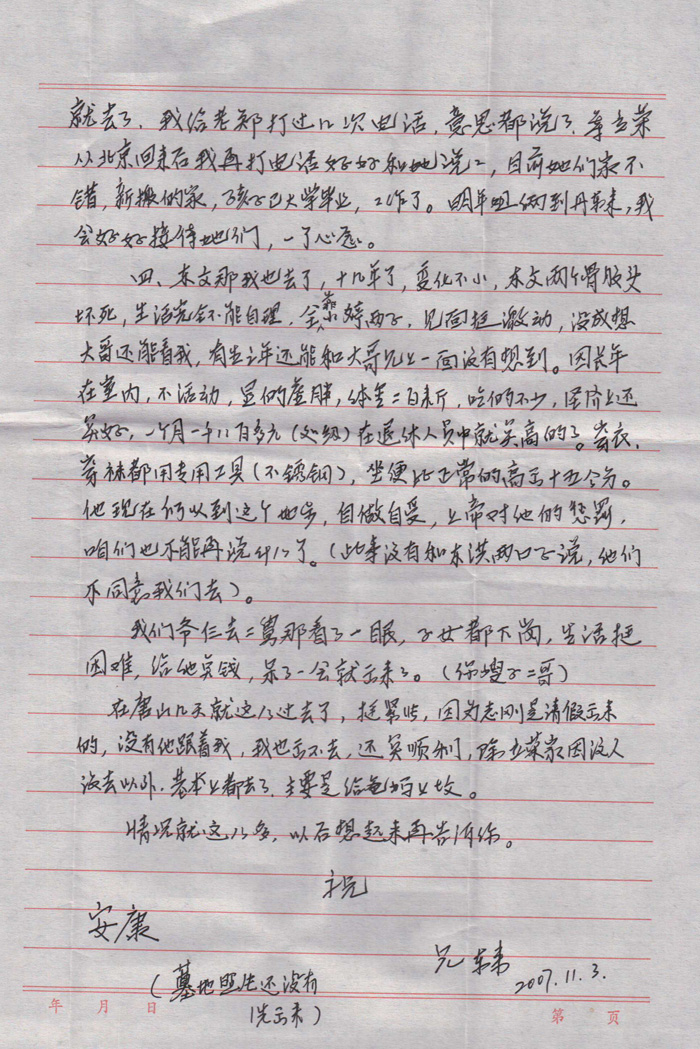 就去了，我给老郑打过几次电话，意思都说了，等立荣
从北京回来后我再打电话好好和她说说，目前她们家不
错，新搬的家，孩子已大学毕业，工作了。明年她俩到丹东来，我
会好好接待她们，一了心愿。
四、东文那我也去了，十几年了，变化不小，东文两个骨股头
坏死，生活完全不能自理，全靠婷两子，见面挺激动，没成想
大哥还能看我，有生之年还能和大哥见上一面没有想到。因长年
在室内，不活动，显的虚胖，体重二百来斤，吃的不少，经济上还
算好，一个月一千八百多元（处级）在退休人员中就算高的了。穿衣、
穿袜都用专用工具（不锈钢），坐便比正常的高出十五公分。
他现在所以到这个地步，自做自受，上帝对他的惩罚，
咱们也不能再说什么了。（此事没有和东洪两口子说，他们
不同意我们去）。
我们爷仨去二舅那看了一眼，子女都下岗，生活挺
困难，给他点钱，呆了一会就出来了。（你嫂子二哥）
在唐山几天就这么过去了，挺紧些，因为志刚是请假出来
的，没有他跟着我，我也出不去，还算顺利，除立荣家因没人
没去以外，基本上都去了，主要是给爸妈上坟。
情况就这么多，以后想起来再告诉你。
祝
安康
兄
2007.11.3.
（墓地照片还没有
洗出来）
年 月 日
第 页